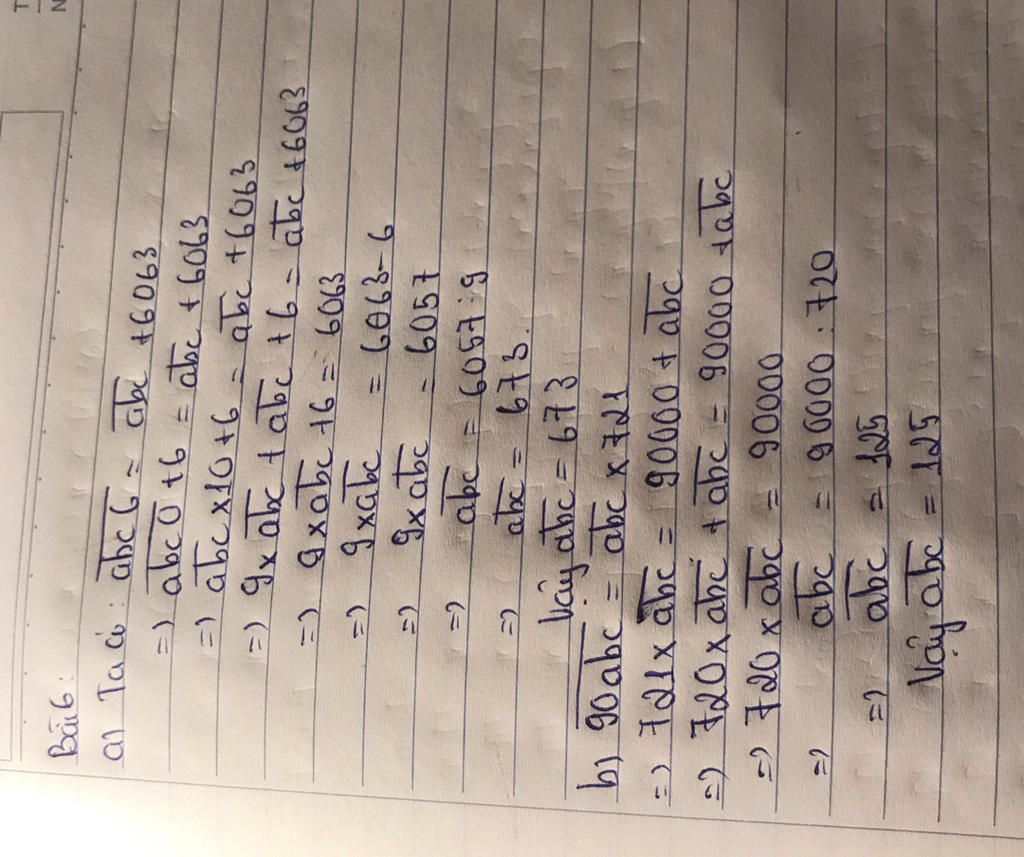 Bài 6:
a) Ta có: a̅b̅c̅6̅ = a̅b̅c̅ + 6063
=) a̅b̅c̅0̅ + 6 = a̅b̅c̅ + 6063
=) a̅b̅c̅ x 10 + 6 = a̅b̅c̅ + 6063
=) 9 x a̅b̅c̅ + a̅b̅c̅ + 6 = a̅b̅c̅ + 6063
=) 9 x a̅b̅c̅ + 6 = 6063
=) 9 x a̅b̅c̅ = 6063 - 6
=) 9 x a̅b̅c̅ = 6057
=) a̅b̅c̅ = 6057 : 9
=) a̅b̅c̅ = 673.
Vậy a̅b̅c̅ = 673
b) 9̅0̅a̅b̅c̅ = a̅b̅c̅ x 721
=) 721 x a̅b̅c̅ = 90000 + a̅b̅c̅
=) 720 x a̅b̅c̅ + a̅b̅c̅ = 90000 + a̅b̅c̅
=) 720 x a̅b̅c̅ = 90000
=) a̅b̅c̅ = 90000 : 720
=) a̅b̅c̅ = 125
Vậy a̅b̅c̅ = 125